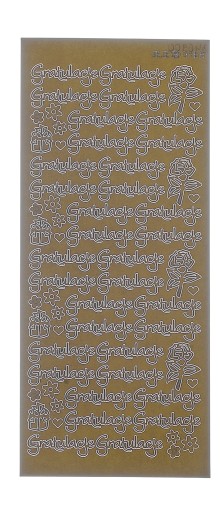 Gratulacje Gratulacje
Gratulacje Gratulacje
Gratulacje Gratulacje
Gratulacje Gratulacje
Gratulacje Gratulacje
Gratulacje Gratulacje
Gratulacje Gratulacje
Gratulacje Gratulacje
Gratulacje Gratulacje
Gratulacje Gratulacje
Gratulacje Gratulacje
Gratulacje Gratulacje
Gratulacje Gratulacje
Gratulacje Gratulacje
Gratulacje Gratulacje
Gratulacje Gratulacje
Gratulacje Gratulacje